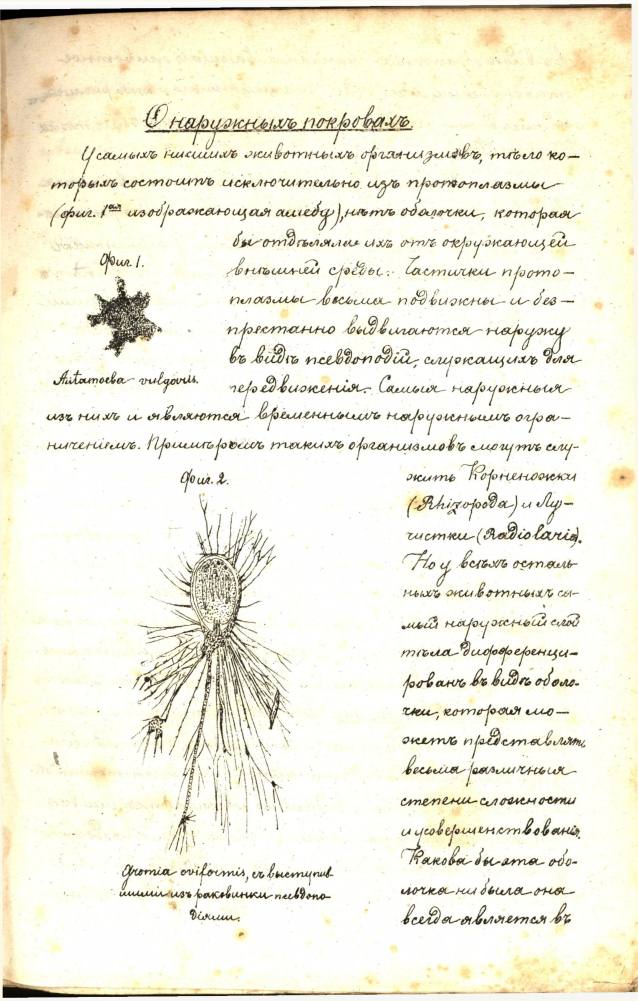 О наружныхъ покровахъ.
У самыхъ низшихъ животныхъ организмовъ, тѣло ко-
торыхъ состоитъ исключительно изъ протоплазмы
(фиг. 1ая изображающая амебу), нѣтъ оболочки, которая
бы отдѣляла ихъ отъ окружающей
внѣшней среды. Частички прото-
плазмы весьма подвижны и без-
престанно выдвигаются наружу
въ видѣ псевдоподій, служащихъ для
передвиженія. Самыя наружныя
Фиг. 1.
vulgaris.
изъ нихъ и являются временнымъ наружнымъ огра-
ниченіемъ. Примѣромъ такихъ организмовъ могутъ слу-
жить Корненожки
(Rhizopoda) и Лу-
чистки (Radiolaria).
Но у всѣхъ осталь
ныхъ животныхъ са-
мый наружный слой
тѣла дифференци-
рованъ въ видѣ оболо-
чки, которая мо-
жетъ представлять
весьма различныя
степени сложности
и усовершенствованія.
Какова бы эта обо-
лочка ни была она
всегда является въ
Фиг. 2.
Gromia oviformis, съ выступив
шими изъ раковинки псевдопо-
діями.